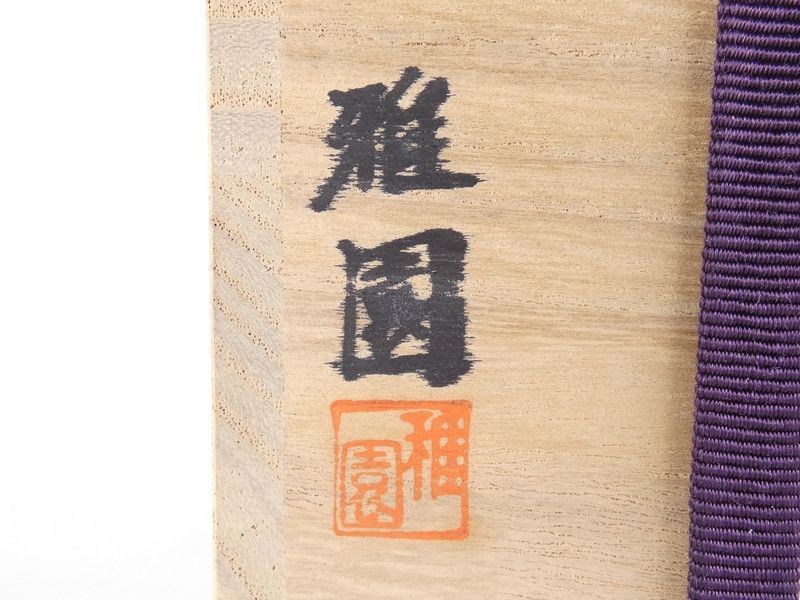 雅園
雅園